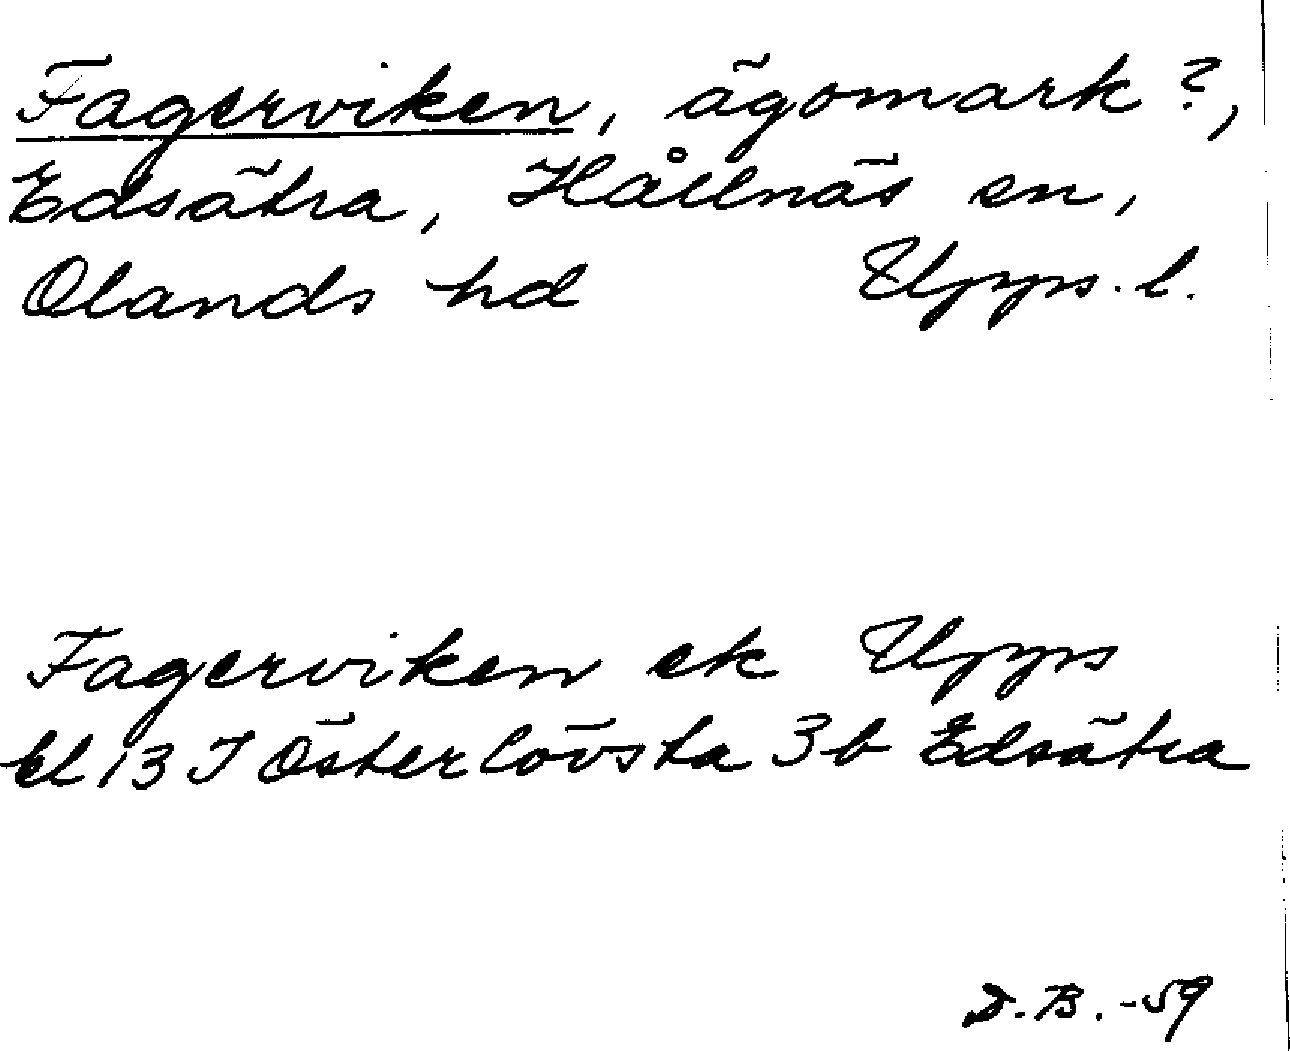 Fagerviken, ägomark?,
Edsätra, Hållnäs sn,
Olands hd Upps. l.
Fagerviken ek Upps
bl 13 I Österlövsta 3b Edsätra
D.B. -59